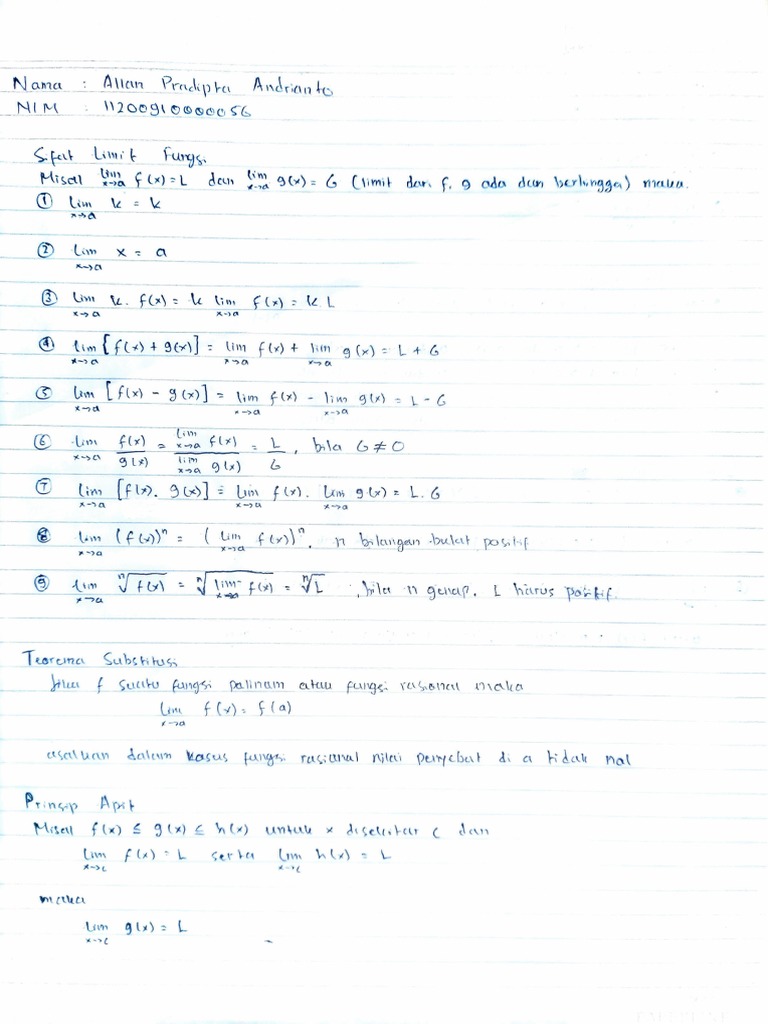 Nama : Allan Pradipta Andrianto
NIM : 11200910000056
Sifat Limit Fungsi
Misal lim x→a f(x) = L dan lim x→a g(x) = G (limit dari f, g ada dan berhingga) maka
① lim x→a k = k
② lim x→a x = a
③ lim x→a k. f(x) = k lim x→a f(x) = k L
④ lim x→a [f(x) + g(x)] = lim x→a f(x) + lim x→a g(x) = L + G
⑤ lim x→a [f(x) - g(x)] = lim x→a f(x) - lim x→a g(x) = L - G
⑥ lim x→a f(x)/g(x) = lim x→a f(x) / lim x→a g(x) = L/G, bila G ≠ 0
⑦ lim x→a [f(x). g(x)] = lim x→a f(x). lim x→a g(x) = L. G
⑧ lim x→a (f(x))ⁿ = (lim x→a f(x))ⁿ. n bilangan bulat positif
⑨ lim x→a ⁿ√f(x) = ⁿ√lim x→a f(x) = ⁿ√L , bila n genap. L harus positif.
Teorema Substitusi
Jika f suatu fungsi polinom atau fungsi rasional maka
lim x→a f(x) = f(a)
asalkan dalam kasus fungsi rasional nilai penyebut di a tidak nol
Prinsip Apit
Misal f(x) ≤ g(x) ≤ h(x) untuk x disekitar c dan
lim x→c f(x) = L serta lim x→c h(x) = L
maka
lim x→c g(x) = L